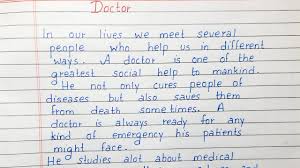 Doctor
In our lives we meet several
people who help us in different
ways. A doctor is one of the
greatest social help to mankind.
He not only cures people of
diseases but also saves them
from death sometimes. A
doctor is always ready for any
kind of emergency his patients
might face.
He studies alot about medical